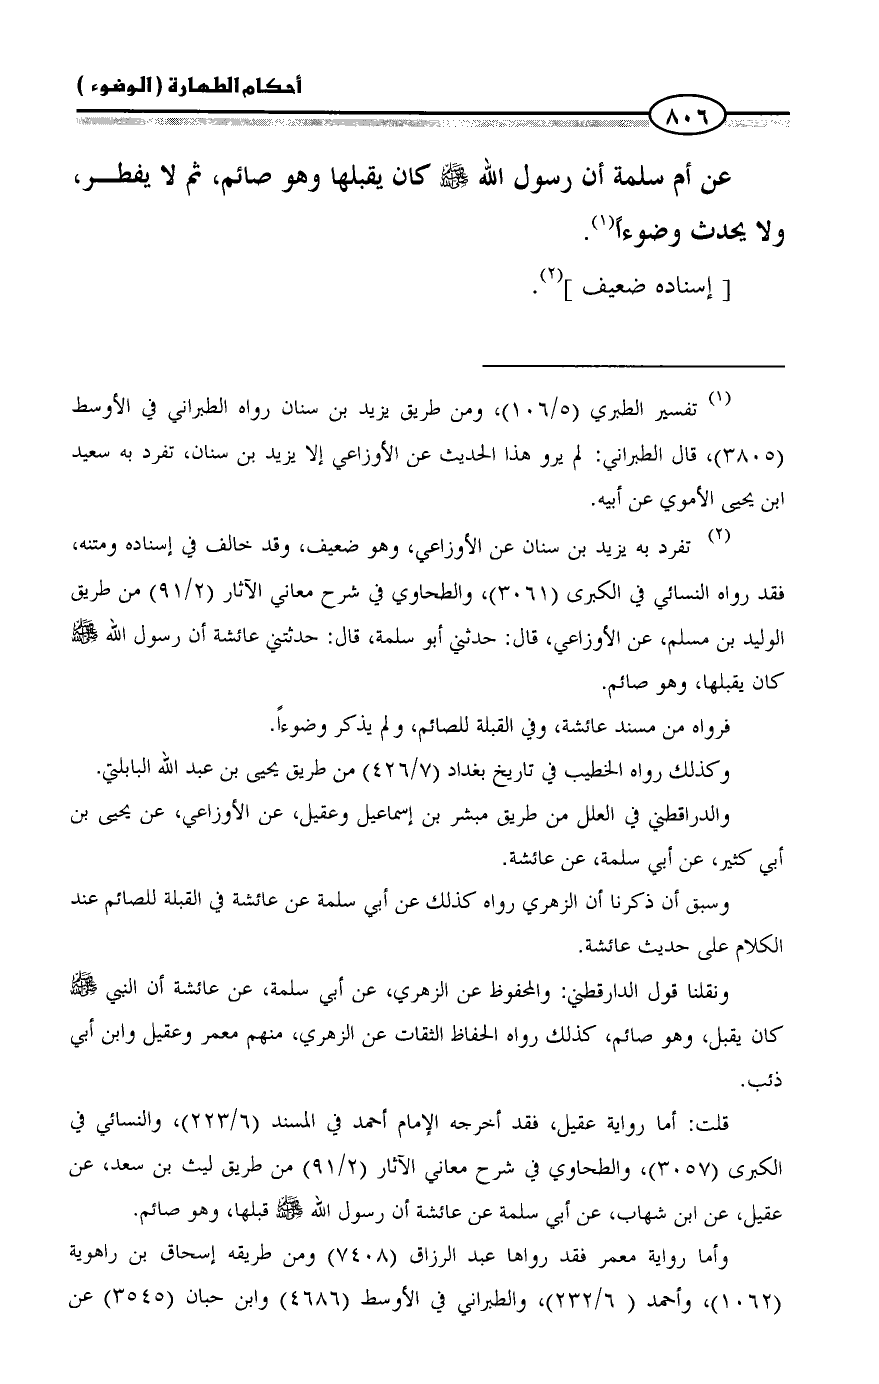 أحكام الطهارة ( الوضوء )
٨٠٦
عن أم سلمة أن رسول الله ﷺ كان يقبلها وهو صائم، ثم لا يفطـــر،
ولا يحدث وضوءاً(١).
[ إسناده ضعيف ](٢).
(١) تفسير الطبري (١٠٦/٥)، ومن طريق يزيد بن سنان رواه الطبراني في الأوسط
(٣٨٠٥)، قال الطبراني: لم يرو هذا الحديث عن الأوزاعي إلا يزيد بن سنان، تفرد به سعيد
ابن يحيى الأموي عن أبيه.
(٢) تفرد به يزيد بن سنان عن الأوزاعي، وهو ضعيف، وقد خالف في إسناده ومتنه،
فقد رواه النسائي في الكبرى (٣٠٦١)، والطحاوي في شرح معاني الآثار (٩١/٢) من طريق
الوليد بن مسلم، عن الأوزاعي، قال: حدثني أبو سلمة، قال: حدثتني عائشة أن رسول الله ﷺ
كان يقبلها، وهو صائم.
فرواه من مسند عائشة، وفي القبلة للصائم، ولم يذكر وضوءاً.
وكذلك رواه الخطيب في تاريخ بغداد (٤٢٦/٧) من طريق يحيى بن عبد الله البابلتي.
والدراقطني في العلل من طريق مبشر بن إسماعيل وعقيل، عن الأوزاعي، عن يحيى بن
أبي كثير، عن أبي سلمة، عن عائشة.
وسبق أن ذكرنا أن الزهري رواه كذلك عن أبي سلمة عن عائشة في القبلة للصائم عند
الكلام على حديث عائشة.
ونقلنا قول الدارقطني: والمحفوظ عن الزهري، عن أبي سلمة، عن عائشة أن النبي ﷺ
كان يقبل، وهو صائم، كذلك رواه الحفاظ الثقات عن الزهري، منهم معمر وعقيل وابن أبي
ذئب.
قلت: أما رواية عقيل، فقد أخرجه الإمام أحمد في المسند (٢٢٣/٦)، والنسائي في
الكبرى (٣٠٥٧)، والطحاوي في شرح معاني الآثار (٩١/٢) من طريق ليث بن سعد، عن
عقيل، عن ابن شهاب، عن أبي سلمة عن عائشة أن رسول الله ﷺ قبلها، وهو صائم.
وأما رواية معمر فقد رواها عبد الرزاق (٧٤٠٨) ومن طريقه إسحاق بن راهوية
(١٠٦٢)، وأحمد ( ٢٣٢/٦)، والطبراني في الأوسط (٤٦٨٦) وابن حبان (٣٥٤٥) عن